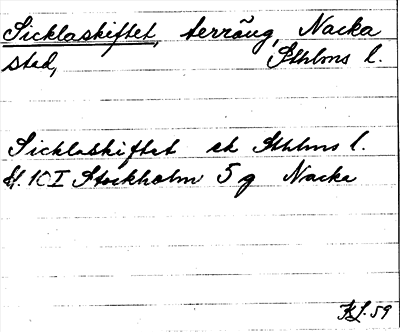 Sicklaskiftet, terräng, Nacka
stad, Sthlms l.
Sicklaskiftet ek Sthlms l.
bl. 10 I Stockholm 5 g Nacka
KL. 59